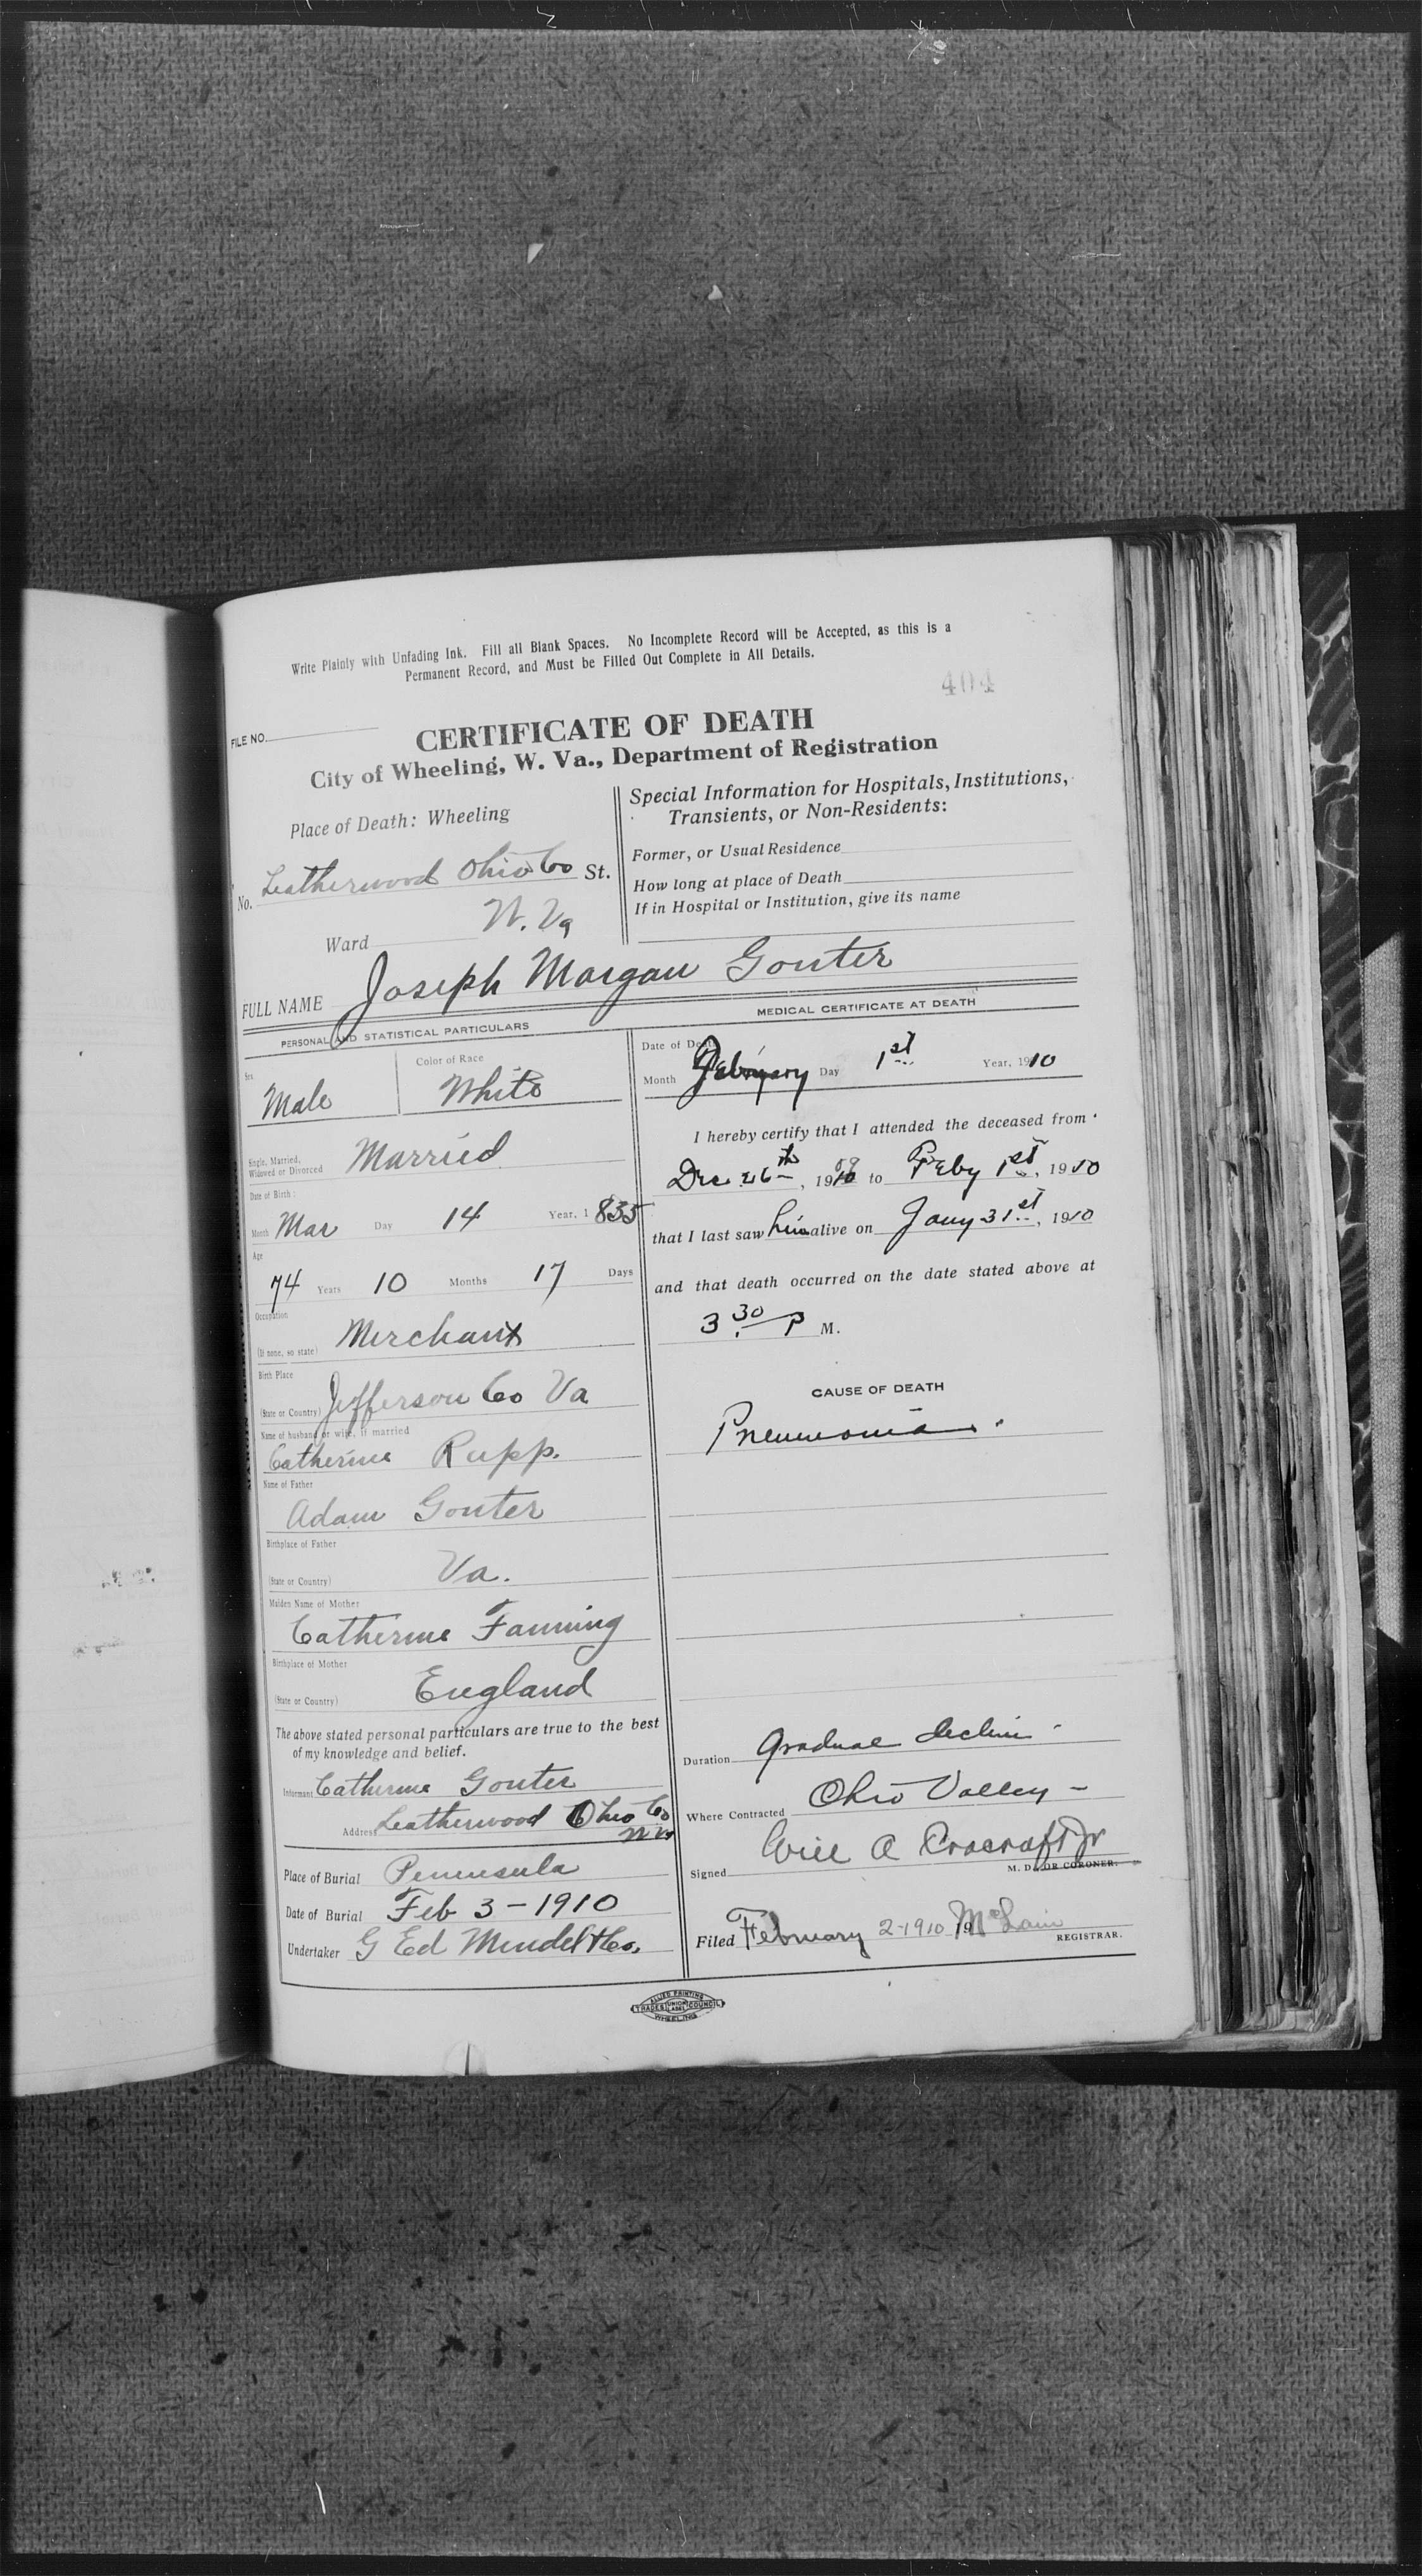 Write Plainly with Unfading Ink. Fill all Blank Spaces. No Incomplete Record will be Accepted, as this is a
Permanent Record, and Must be Filled Out Complete in All Details.
404
FILE NO.
CERTIFICATE OF DEATH
City of Wheeling, W. Va., Department of Registration
Place of Death: Wheeling
No. Leatherwood Ohio Co St.
W. Va
Ward
Special Information for Hospitals, Institutions,
Transients, or Non-Residents:
Former, or Usual Residence
How long at place of Death
If in Hospital or Institution, give its name
FULL NAME Joseph Morgan Gonter
PERSONAL AND STATISTICAL PARTICULARS
Sex
Color of Race
Male White
Single, Married,
Widowed or Divorced Married
Date of Birth:
Month Mar Day 14 Year, 1835
Age
74 Years 10 Months 17 Days
Occupation
(If none, so state) Merchant
Birth Place
(State or Country) Jefferson Co Va
Name of husband or wife, if married
Catherine Rupp.
Name of Father
Adam Gonter
Birthplace of Father
(State or Country) Va.
Maiden Name of Mother
Catherine Fanning
Birthplace of Mother
(State or Country) England
The above stated personal particulars are true to the best
of my knowledge and belief.
Informant Catherine Gonter
Address Leatherwood Ohio Co
W Va
Place of Burial Peninsula
Date of Burial Feb 3-1910
Undertaker G Ed Mendel & Co.
MEDICAL CERTIFICATE AT DEATH
Date of Death
Month February Day 1st Year, 1910
I hereby certify that I attended the deceased from
Dec 26th, 1909 to Feby 1st, 1910
that I last saw him alive on Jany 31st, 1910
and that death occurred on the date stated above at
3.30 P M.
CAUSE OF DEATH
Pneumonia.
Duration Gradual decline
Where Contracted Ohio Valley -
Signed Will A Cracraft Jr
M. D. OR CORONER.
Filed February 2-1910 19 McLain
REGISTRAR.
ALLIED PRINTING
TRADES UNION LABEL COUNCIL
WHEELING